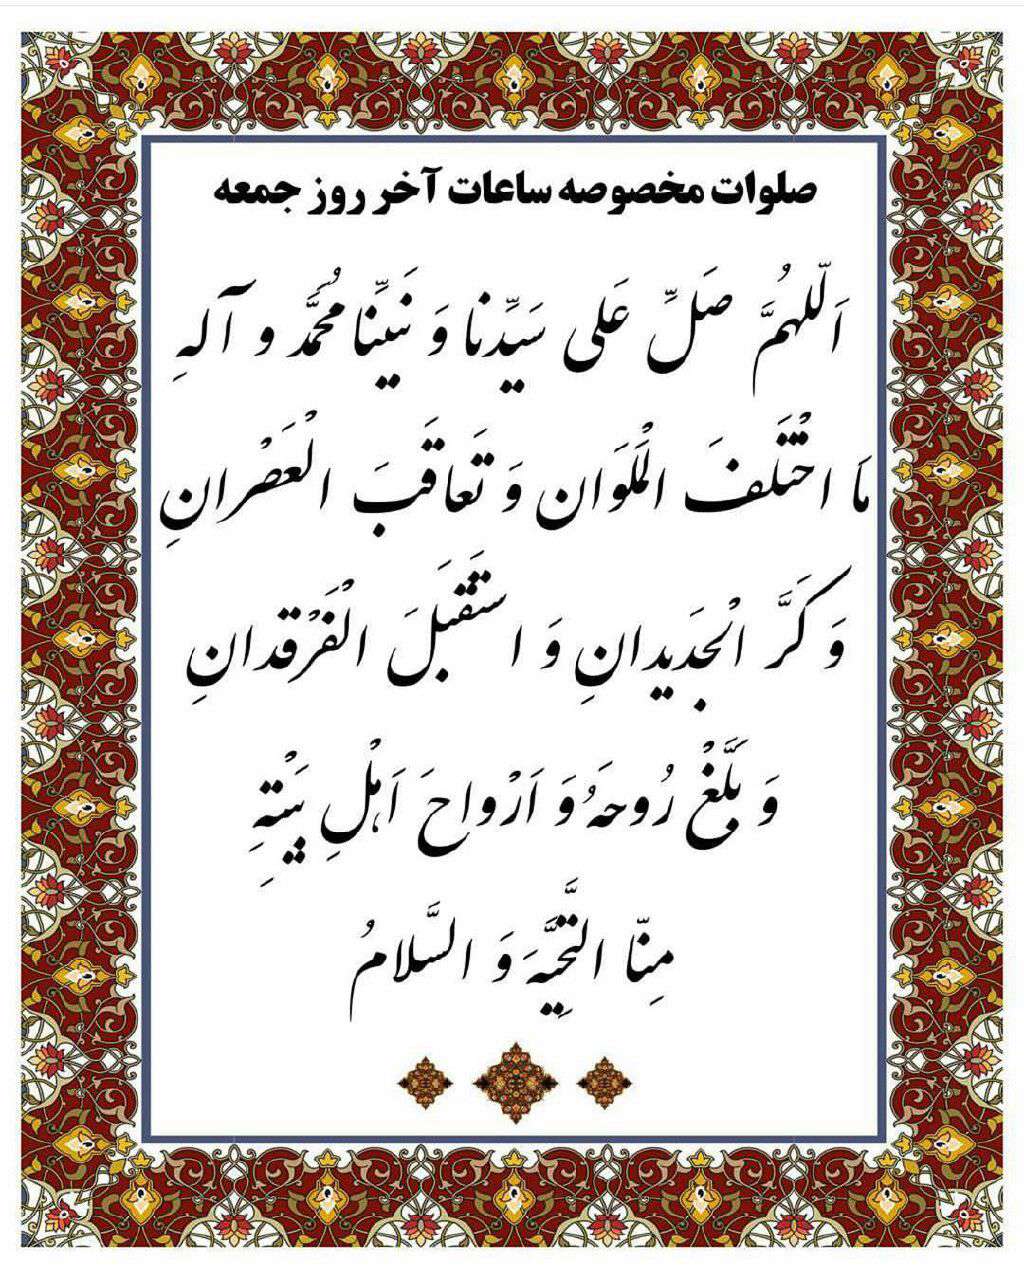 صلوات مخصوصه ساعات آخر روز جمعه
اَللّهُمَّ صَلِّ عَلی سَیِّدِنا وَ نَبیِّنا مُحَمَّد و آلهِ
مَا اخْتَلَفَ الْمَلَوَان وَ تَعاقَبَ الْعَصْرانِ
وَ کَرَّ الْجَدیدانِ وَ اسْتَقْبَلَ الْفَرْقَدانِ
وَ بَلِّغْ رُوحَهُ وَ اَرْواحَ اَهْلِ بَیْتِهِ
مِنّا التَّحِیَّهَ وَ السَّلامُ